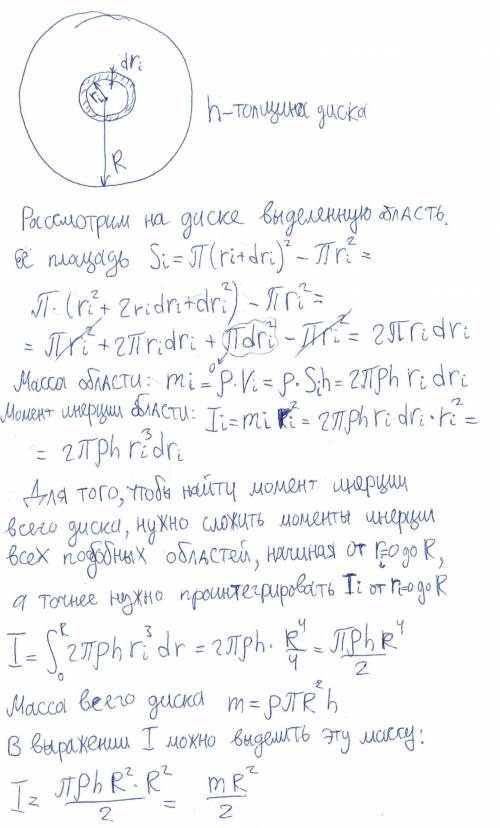 dri
ri
h-толщина диска
R
Рассмотрим на диске выделенную область.
Её площадь Si = π(ri+dri)² − πri² =
π·(ri²+2ridri+dri²) − πri² =
= πri² + 2πridri + πdri² − πri² = 2πridri
0
Масса области: mi = ρ·Vi = ρ·Sih = 2πρh ri dri
Момент инерции области: Ii = mi ri² = 2πρh ri dri·ri² =
= 2πρh ri³dri
Для того, чтобы найти момент инерции
всего диска, нужно сложить моменты инерции
всех подобных областей, начиная от ri=0 до R,
а точнее нужно проинтегрировать Ii от ri=0 до R
I = ∫₀ᴿ 2πρh ri³ dr = 2πρh · R⁴/4 = πρhR⁴/2
Масса всего диска m = ρπR²h
В выражении I можно выделить эту массу:
I = πρhR²·R²/2 = mR²/2